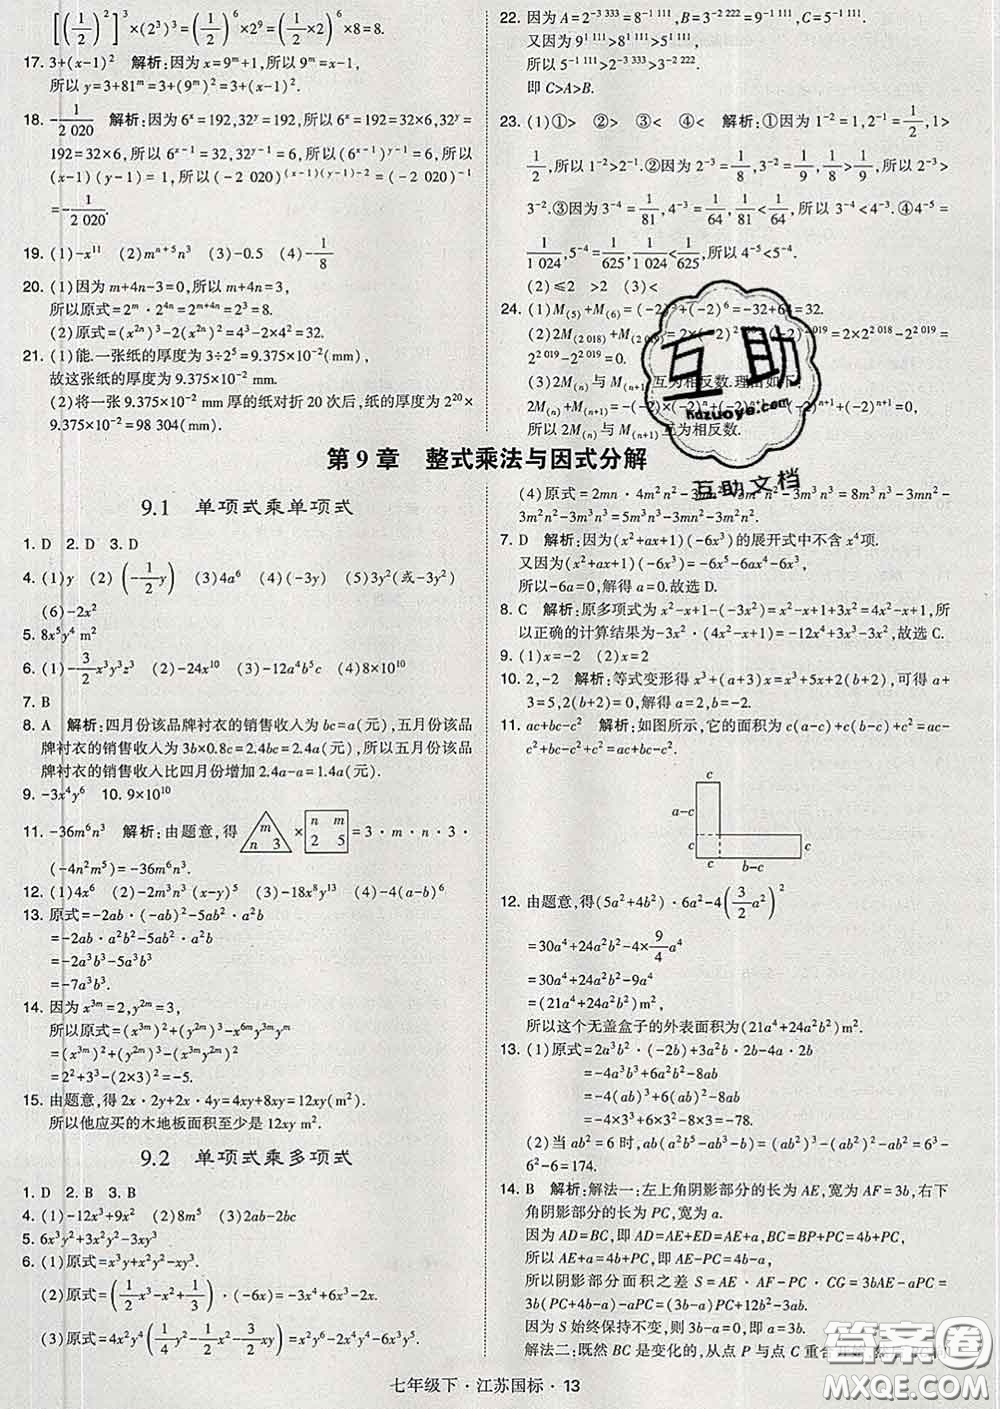 [(1/2)²]³×(2³)³=(1/2)⁶×2⁹=(1/2×2)⁶×8=8.
17. 3+(x-1)² 解析:因为 x=9ᵐ+1,所以 9ᵐ=x-1,
所以 y=3+81ᵐ=3+(9ᵐ)²=3+(x-1)².
18. -1/2 020 解析:因为 6ˣ=192,32ʸ=192,所以 6ˣ=192=32×6,32ʸ=
192=32×6,所以 6ˣ⁻¹=32,32ʸ⁻¹=6,所以(6ˣ⁻¹)ʸ⁻¹=6,所以
(x-1)(y-1)=1,所以(-2 020)^((x-1)(y-1)-2)=(-2 020)⁻¹
=-1/2 020.
19. (1)-x¹¹ (2)mⁿ⁺⁵n³ (3)-0.5 (4)-1/8
20. (1)因为 m+4n-3=0,所以 m+4n=3,
所以原式=2ᵐ·2⁴ⁿ=2ᵐ⁺⁴ⁿ=2³=8.
(2)原式=(x²ⁿ)³-2(x²ⁿ)²=4³-2×4²=32.
21. (1)能.一张纸的厚度为 3÷2⁵=9.375×10⁻²(mm),
故这张纸的厚度为 9.375×10⁻² mm.
(2)将一张 9.375×10⁻² mm 厚的纸对折 20 次后,纸的厚度 2²⁰×
9.375×10⁻²=98 304(mm).
22. 因为 A=2⁻³ ³³³=8⁻¹ ¹¹¹,B=3⁻² ²²²=9⁻¹ ¹¹¹,C=5⁻¹ ¹¹¹.
又因为 9¹ ¹¹¹>8¹ ¹¹¹>5¹ ¹¹¹,
所以 5⁻¹ ¹¹¹>2⁻³ ³³³>3⁻² ²²².
即 C>A>B.
23. (1)①> ②> ③< ④< 解析:①因为 1⁻²=1,2⁻¹=1/2,1>
1/2,所以 1⁻²>2⁻¹.②因为 2⁻³=1/8,3⁻²=1/9,1/8>1/9,所以 2⁻³>
3⁻².③因为 3⁻⁴=1/81,4⁻³=1/64,1/81<1/64,所以 3⁻⁴<4⁻³.④4⁻⁵=
1/1 024,5⁻⁴=1/625,1/1 024<1/625,所以 4⁻⁵<5⁻⁴.
(2)≤2 >2 (3)<
24. (1)M₍₅₎+M₍₆₎=(-2)⁵+(-2)⁶=-32+64=32.
(2)2M₍₂ ₀₁₈₎+M₍₂ ₀₁₉₎=2×(-2)² ⁰¹⁸+(-2)² ⁰¹⁹=2×2² ⁰¹⁸-2² ⁰¹⁹
=2² ⁰¹⁹-2² ⁰¹⁹=0.
(3)2M₍ₙ₎与 M₍ₙ₊₁₎互为相反数.理由如下:
2M₍ₙ₎+M₍ₙ₊₁₎=-(-2)×(-2)ⁿ+(-2)ⁿ⁺¹=-(-2)ⁿ⁺¹+(-2)ⁿ⁺¹=0,
所以 2M₍ₙ₎与 M₍ₙ₊₁₎互为相反数.
互助
hdzuoye.com
互助文档
第 9 章 整式乘法与因式分解
9.1 单项式乘单项式
1. D 2. D 3. D
4. (1)y (2)(-1/2y) (3)4a⁶ (4)(-3y) (5)3y²(或-3y²)
(6)-2x²
5. 8x⁵y⁴ m²
6. (1)-3/2x³y³z³ (2)-24x¹⁰ (3)-12a⁴b⁵c (4)8×10¹⁰
7. B
8. A 解析:四月份该品牌衬衣的销售收入为 bc=a(元),五月份该品
牌衬衣的销售收入为 3b×0.8c=2.4bc=2.4a(元),所以五月份该
品牌衬衣的销售收入比四月份增加 2.4a-a=1.4a(元).
9. -3x⁴y⁶ 10. 9×10¹⁰
11. -36m⁶n³ 解析:由题意,得 m n 3 × n m 2 5 =3·m·n·3·
(-4n²m⁵)=-36m⁶n³.
12. (1)4x⁶ (2)-2m³n²(x-y)⁵ (3)-18x⁸y¹³ (4)-4(a-b)⁶
13. 原式=-2ab·(-ab)²-5ab²·a²b
=-2ab·a²b²-5ab²·a²b
=-2a³b³-5a³b³
=-7a³b³.
14. 因为 x³ᵐ=2,y²ᵐ=3,
所以原式=(x³ᵐ)²+(y²ᵐ)³-x⁶ᵐy³ᵐyᵐ
=(x³ᵐ)²+(y²ᵐ)³-(x³ᵐy²ᵐ)²
=2²+3³-(2×3)²=-5.
15. 由题意,得 2x·2y+2x·4y=4xy+8xy=12xy(m²).
所以他应买的木地板面积至少是 12xy m².
9.2 单项式乘多项式
1. D 2. B 3. B
4. (1)-12x³+9x² (2)8m⁵ (3)2ab-2bc
5. 6x³y²+3x²y²-3xy³
6. (1)原式=x³y+x²y²-xy³.
(2)原式=(1/2x³-x²+1/3)·(-6x)=-3x⁴+6x³-2x.
(3)原式=4x²y⁴(1/4y²-1/2x²-3/2xy)=x²y⁶-2x⁴y⁴-6x³y⁵.
(4)原式=2mn·4m²n²-2mn·3m²n-3mn²=8m³n³-3mn²-
6m³n²-3m³n³=5m³n³-3mn²-6m³n².
7. D 解析:因为(x²+ax+1)(-6x³)的展开式中不含 x⁴项.
又因为(x²+ax+1)(-6x³)=-6x⁵-6ax⁴-6x³,
所以-6a=0,解得 a=0.故选 D.
8. C 解析:原多项式为 x²-x+1-(-3x²)=x²-x+1+3x²=4x²-x+1,所
以正确的计算结果为-3x²·(4x²-x+1)=-12x⁴+3x³-3x²,故选 C.
9. (1)x=-2 (2)x=2
10. 2,-2 解析:等式变形得 x³+(a+3)x=x³+5x+2(b+2),可得 a+
3=5,2(b+2)=0,解得 a=2,b=-2.
11. ac+bc-c² 解析:如图所示,它的面积为 c(a-c)+c(b-c)+c²=ac-
c²+bc-c²+c²=ac+bc-c².
c
a-c
c c
c b-c
12. 由题意,得(5a²+4b²)·6a²-4(3/2a²)²
=30a⁴+24a²b²-4×9/4a⁴
=30a⁴+24a²b²-9a⁴
=(21a⁴+24a²b²)m².
所以这个无盖盒子的外表面积为(21a⁴+24a²b²)m².
13. (1)原式=2a³b²·(-2b)+3a²b·2b-4a·2b
=-4a³b³+6a²b²-8ab
=-4(ab)³+6(ab)²-8ab
=-4×3³+6×3²-8×3=-78.
(2)当 ab²=6 时,ab(a²b⁵-ab³-b)=(ab²)³-(ab²)²-ab²=6³-
6²-6=174.
14. B 解析:解法一:左上角阴影部分的长为 AE,宽为 AF=3b,右下
角阴影部分的长为 PC,宽为 a.
因为 AD=BC,即 AE+ED=AE+a,BC=BP+PC=4b+PC,
所以 AE+a=4b+PC,即 AE-PC=4b-a,
所以阴影部分面积之差 S=AE·AF-PC·CG=3bAE-aPC=
3b(PC+4b-a)-aPC=(3b-a)PC+12b²-3ab.
因为 S 始终保持不变,则 3b-a=0,即 a=3b.
解法二:既然 BC 是变化的,从点 P 与点 C 重合开始
七年级下·江苏国标·13
答案圈
MXQE.COM